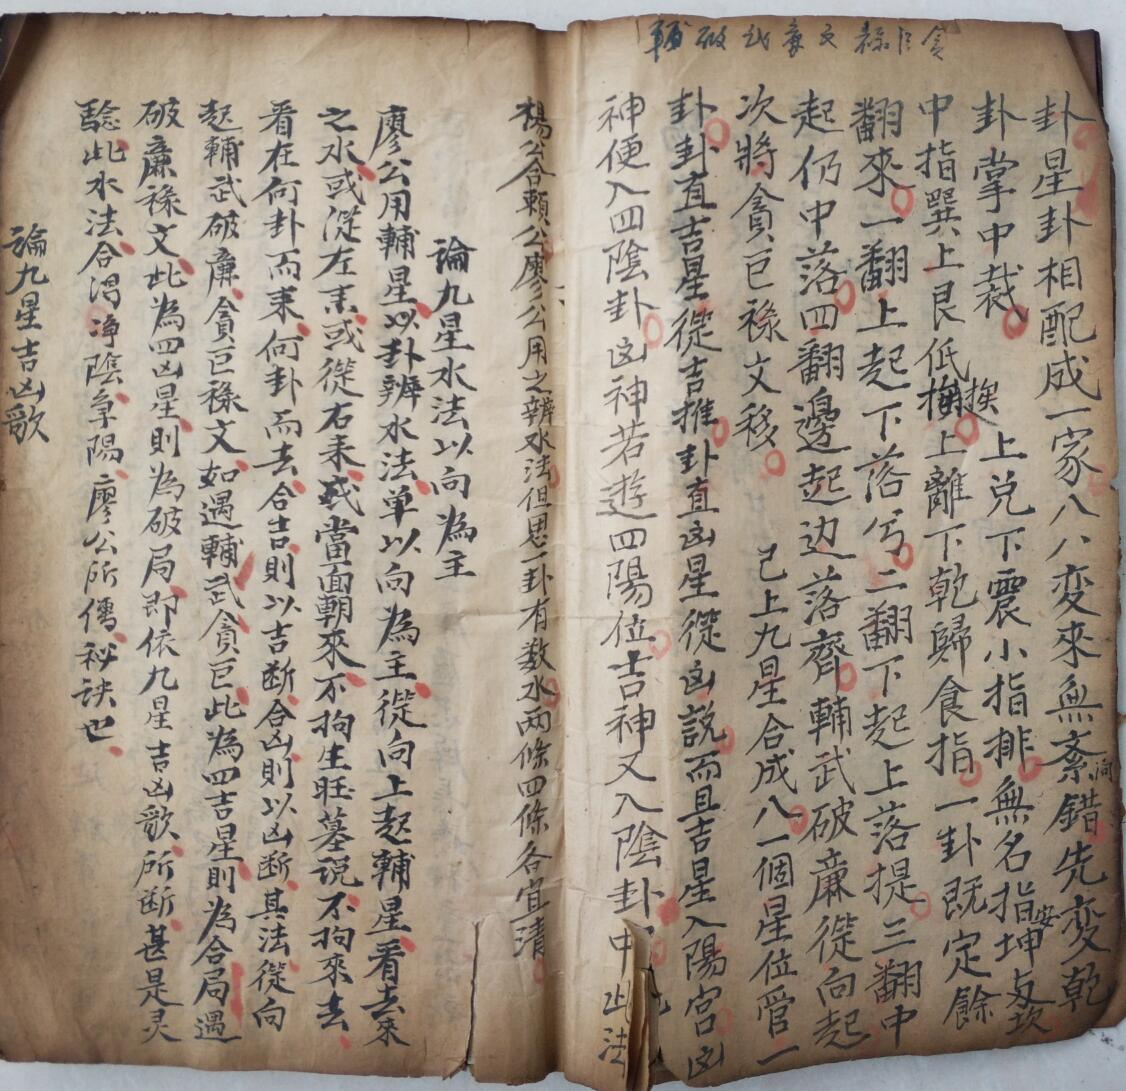 貪巨祿文廉武破輔
卦星卦相配成一家八八变來無紊錯先变乾
卦掌中裁 上兑下震小指排無名指安坤与坎
中指巽上艮低挨上離下乾歸食指一卦既定餘
翻來一翻上起下落丐二翻下起上落提三翻中
起仍中落四翻邊起边落齊輔武破廉從向起
次將貪巨祿文移 已上九星合成八一個星位管一
卦卦直吉星從吉推卦直凶星從凶說而且吉星入陽宫凶
神便入四陰卦凶神若遊四陽位吉神又入陰卦中 此法
楊公合賴公廖公用之辨水法但思一卦有数水两條四條各宜清
論九星水法以向為主
廖公用輔星以卦辨水法单以向為主從向上起輔星看去來
之水或從左來或從右来或當面朝來不拘生旺墓说不拘來去
看在何卦而来何卦而去合吉則以吉断合凶則以凶断其法從向
起輔武破廉貪巨祿文如遇輔武貪巨此為四吉星則為合局遇
破廉祿文此為四凶星則為破局即依九星吉凶歌所断甚是灵
驗此水法合淂净陰净陽廖公所傳秘訣也
論九星吉凶歌